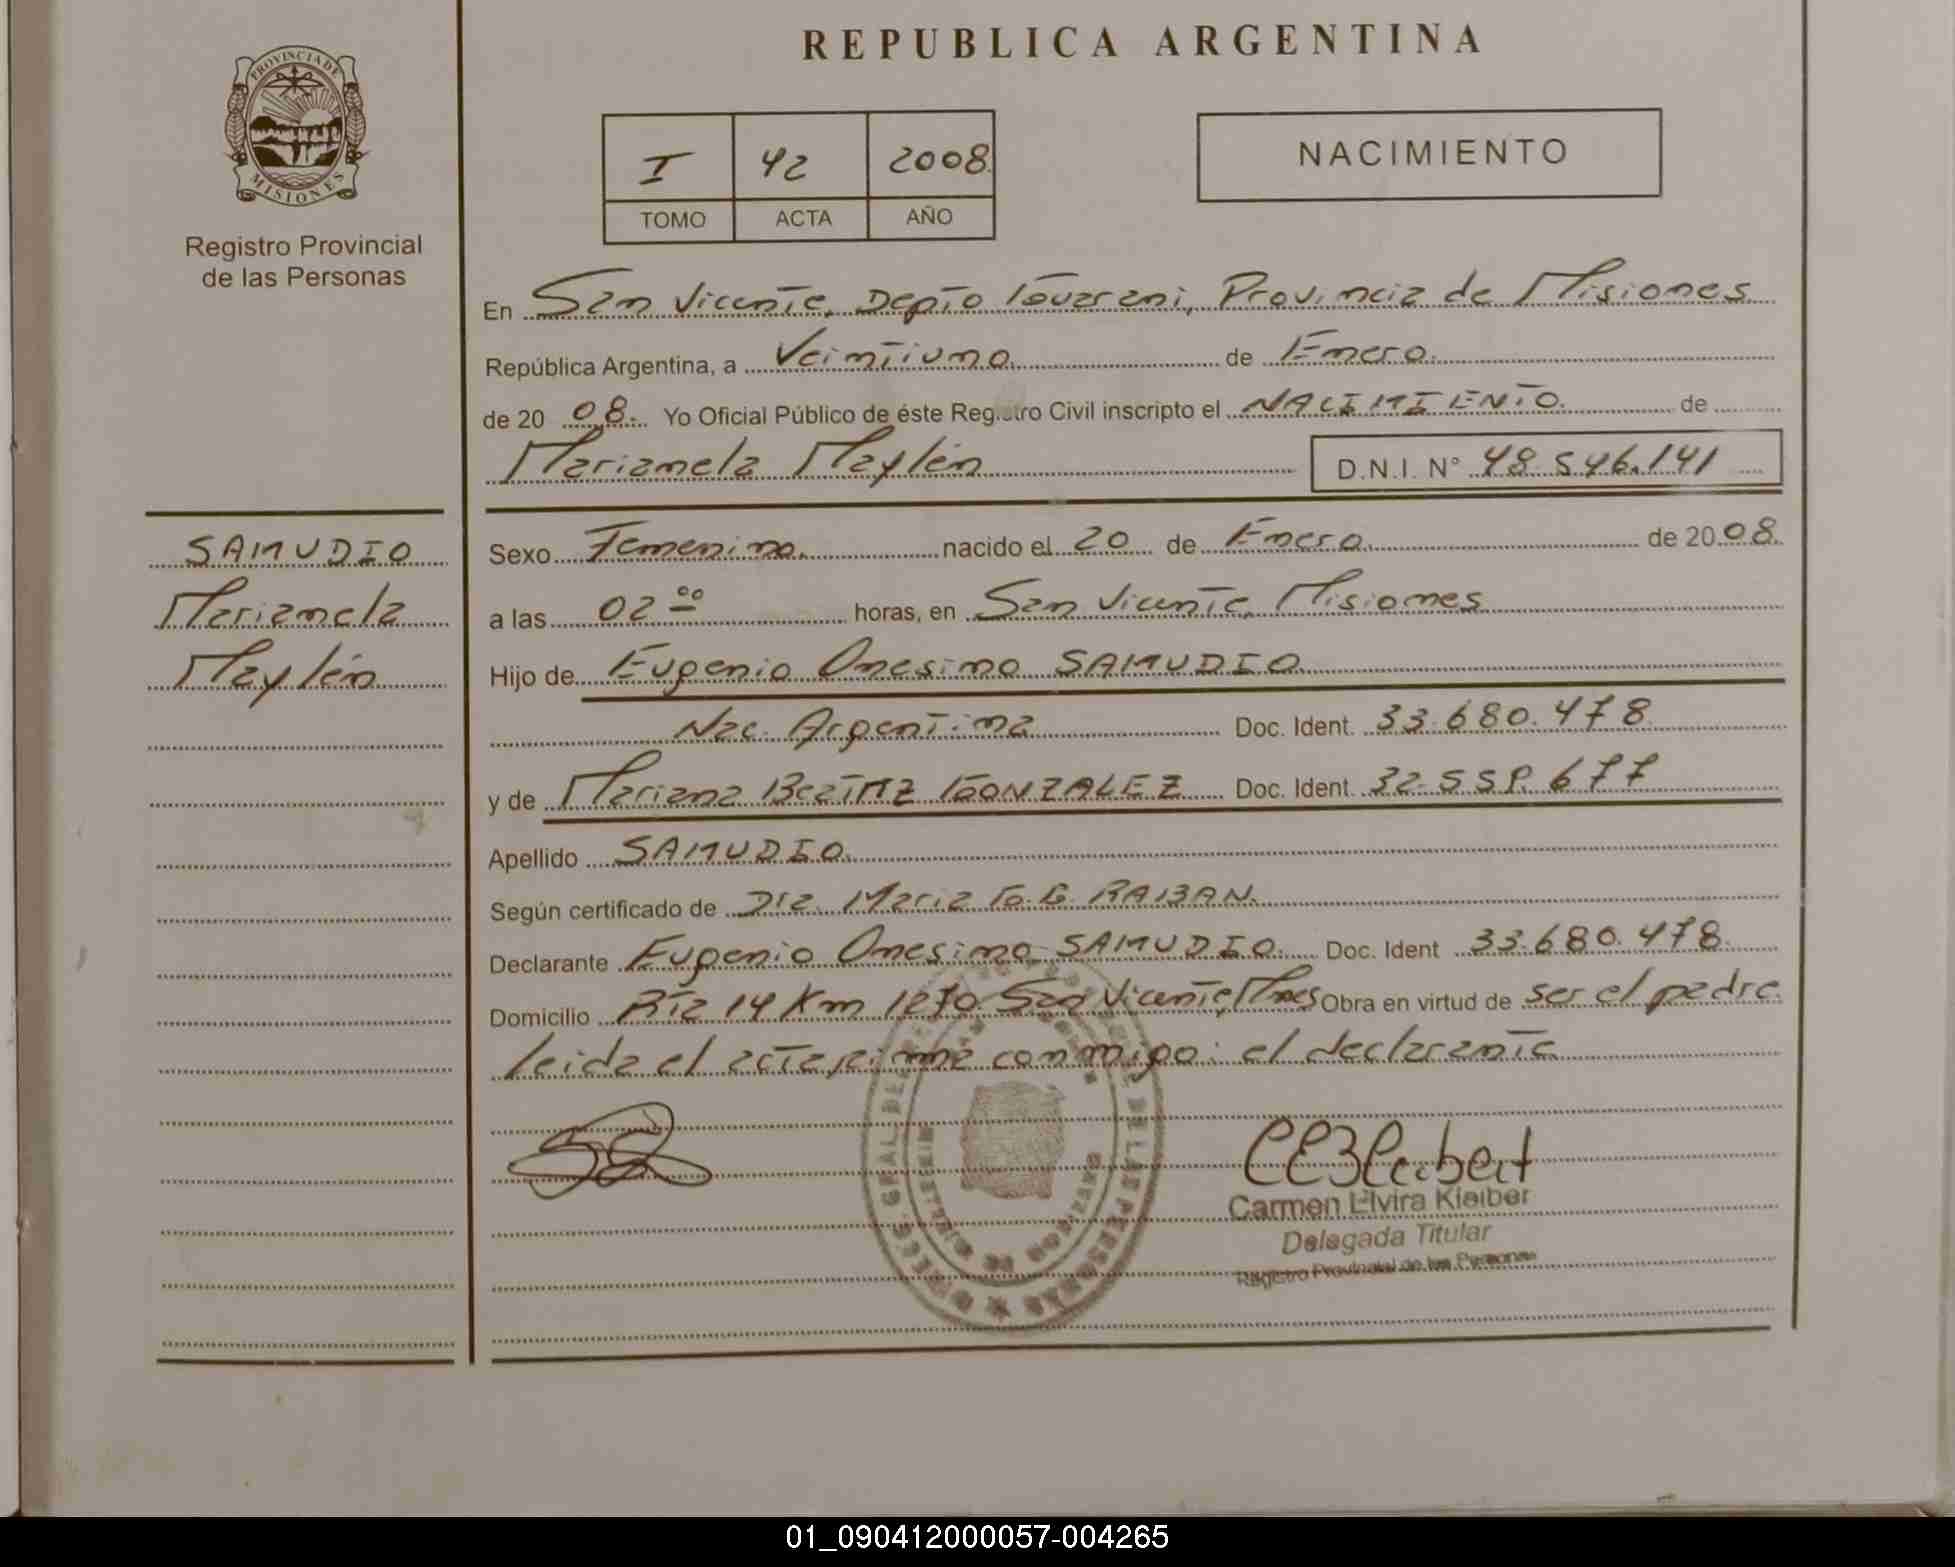 REPUBLICA ARGENTINA
PROVINCIA DE MISIONES
Registro Provincial
de las Personas
I 42 2008
TOMO ACTA AÑO
NACIMIENTO
En San Vicente, Depto Guarani, Provincia de Misiones
República Argentina, a Veintiuno de Enero
de 20 08. Yo Oficial Público de éste Registro Civil inscripto el NACIMIENTO de
Marianela Maylén D.N.I. N° 48.546.141
SAMUDIO
Marianela
Maylén
Sexo Femenino nacido el 20 de Enero de 20 08
a las 02 00 horas, en San Vicente, Misiones
Hijo de Eugenio Onesimo SAMUDIO
Nac. Argentina Doc. Ident. 33.680.478
y de Mariana Beatriz GONZALEZ Doc. Ident. 32. 677
Apellido SAMUDIO
Según certificado de Dra. Maria G. G. RABAN.
Declarante Eugenio Onesimo SAMUDIO Doc. Ident 33.680.478
Domicilio Rta 14 Km 1270 San Vicente, Mnes Obra en virtud de ser el padre
leida el acta, firma conmigo: el declarante
Carmen Elvira Kleiber
Delegada Titular
Registro Provincial de las Personas
01_090412000057-004265